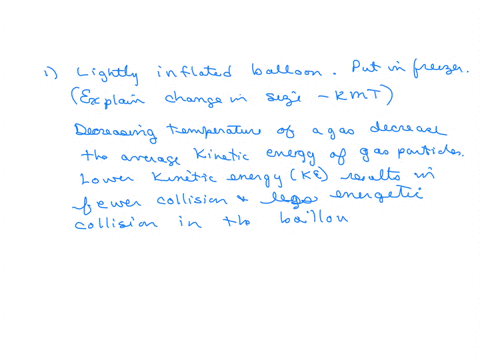 1) Lightly inflated balloon. Put in freezer.
(Explain change in size - KMT)
Decreasing temperature of a gas decrease
the average kinetic energy of gas particles.
Lower kinetic energy (KE) results in
fewer collision & less energetic
collision in the ballou